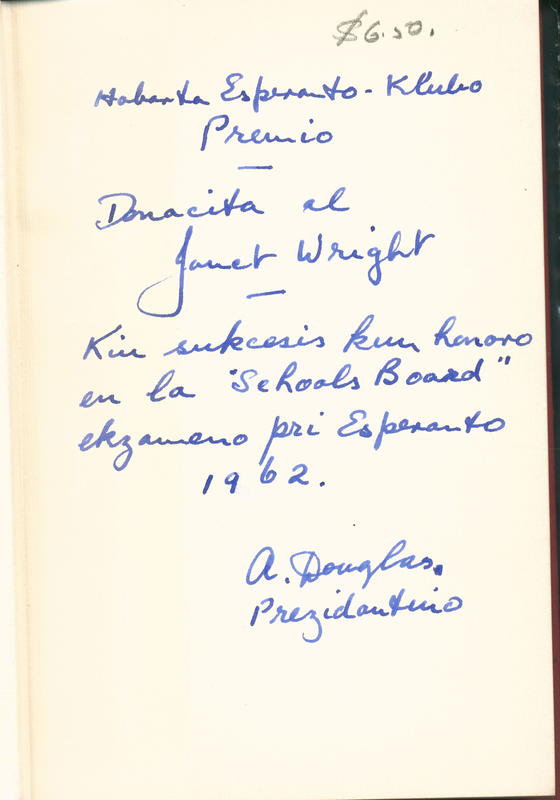 $6.50.
Hobarta Esperanto-Klubo
Premio
Donacita al
Janet Wright
Kiu sukcesis kun honoro
en la "Schools Board"
ekzameno pri Esperanto
1962.
A. Douglas.
Prezidantino